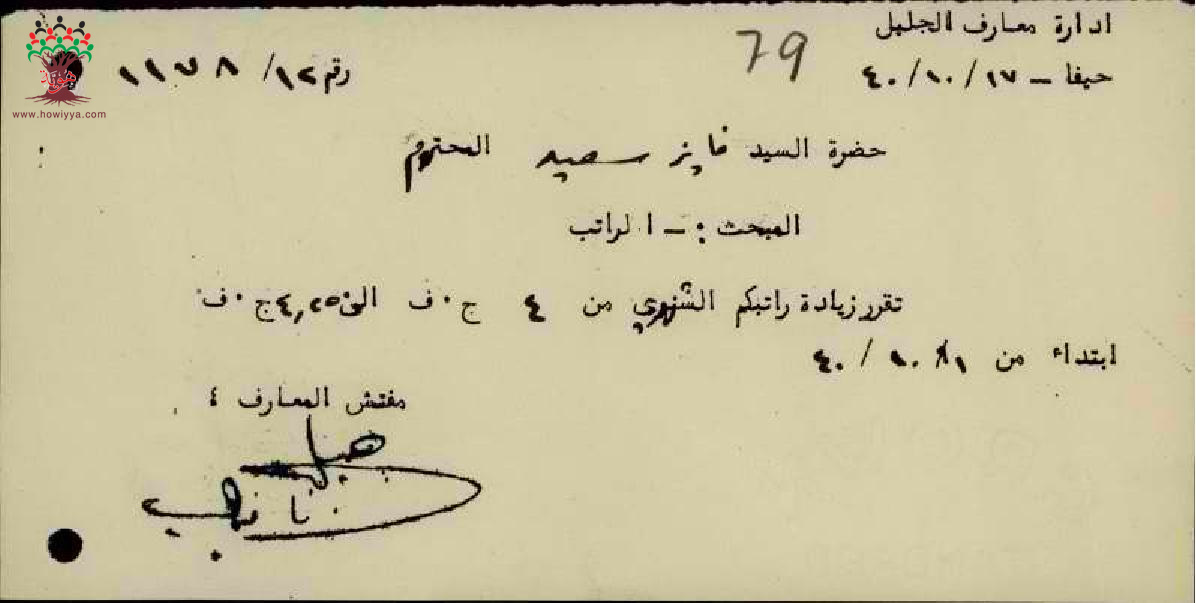 ادارة معارف الجليل
79
حيفا ـ ١٧/١٠/٤٠
رقم ١٢/ ١١٧٨
هوية
www.howiyya.com
حضرة السيد فايز سعيد المحترم
المبحث : ـ الراتب
تقرر زيادة راتبكم الشهري من ٤ ج٠ف الى ٤,٢٥ ج٠ف
ابتداء من ١/ ١٠ / ٤٠
مفتش المعارف ٤